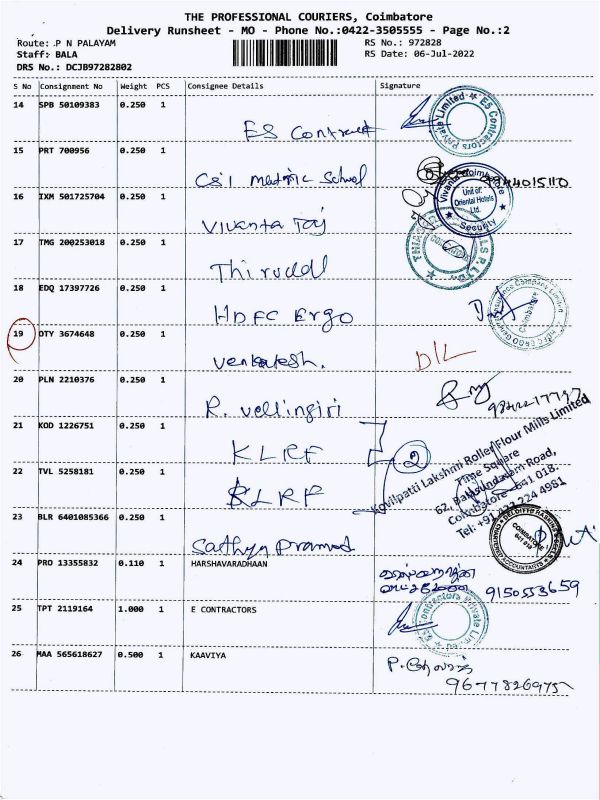 THE PROFESSIONAL COURIERS, Coimbatore
Delivery Runsheet - MO - Phone No.:0422-3505555 - Page No.:2
Route: P N PALAYAM RS No.: 972828
Staff: BALA RS Date: 06-Jul-2022
DRS No.: DCJB97282802
S No Consignment No Weight PCS Consignee Details Signature
14 SPB 50109383 0.250 1 ES Contract
ES Contractors Private Limited
15 PRT 700956 0.250 1 CSI Matric School 9944015110
16 IXM 501725704 0.250 1 Vivanta Taj
Vivanta Coimbatore
Unit of:
Oriental Hotels
Ltd.
Security
17 TMG 200253018 0.250 1 Thiruddl
18 EDQ 17397726 0.250 1 HDFC Ergo
HDFC ERGO General Insurance Company Limited
Coimbatore
19 OTY 3674648 0.250 1 Venkatesh. D/L
20 PLN 2210376 0.250 1 R. Vellingiri
21 KOD 1226751 0.250 1 KLRF 2
22 TVL 5258181 0.250 1 KLRF
Kovilpatti Lakshmi Roller Flour Mills Limited
Time Square
62, Balasundaram Road,
Coimbatore - 641 018.
Tel: +91 422 224 4981
23 BLR 6401085366 0.250 1 Sathya Pramod
DELOITTE HASKINS
COIMBATORE
641 018
CHARTERED ACCOUNTANTS
24 PRO 13355832 0.110 1 HARSHAVARADHAAN 9150553659
25 TPT 2119164 1.000 1 E CONTRACTORS
ES Contractors Private Limited
26 MAA 565618627 0.500 1 KAAVIYA
9677826975